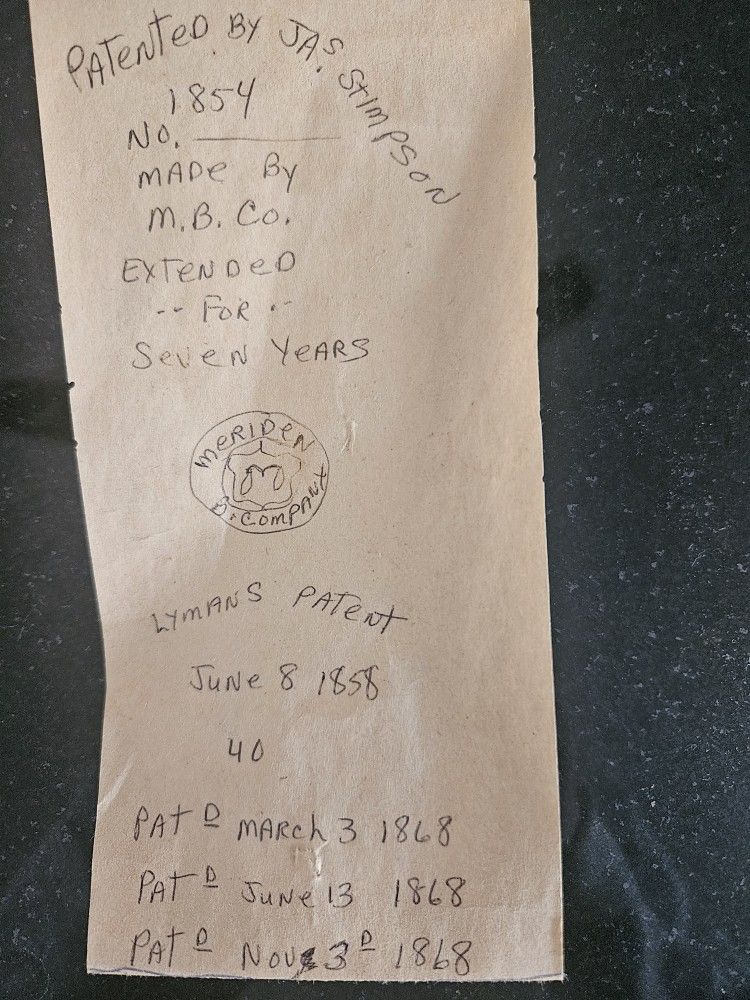 PATENTED BY JAS. STIMPSON
1854
NO. ____________
MADE BY
M.B. CO.
EXTENDED
-- FOR --
SEVEN YEARS
MERIDEN
M
B. COMPANY
LYMANS PATENT
JUNE 8 1858
40
PAT D MARCH 3 1868
PAT D JUNE 13 1868
PAT D NOV 3 D 1868